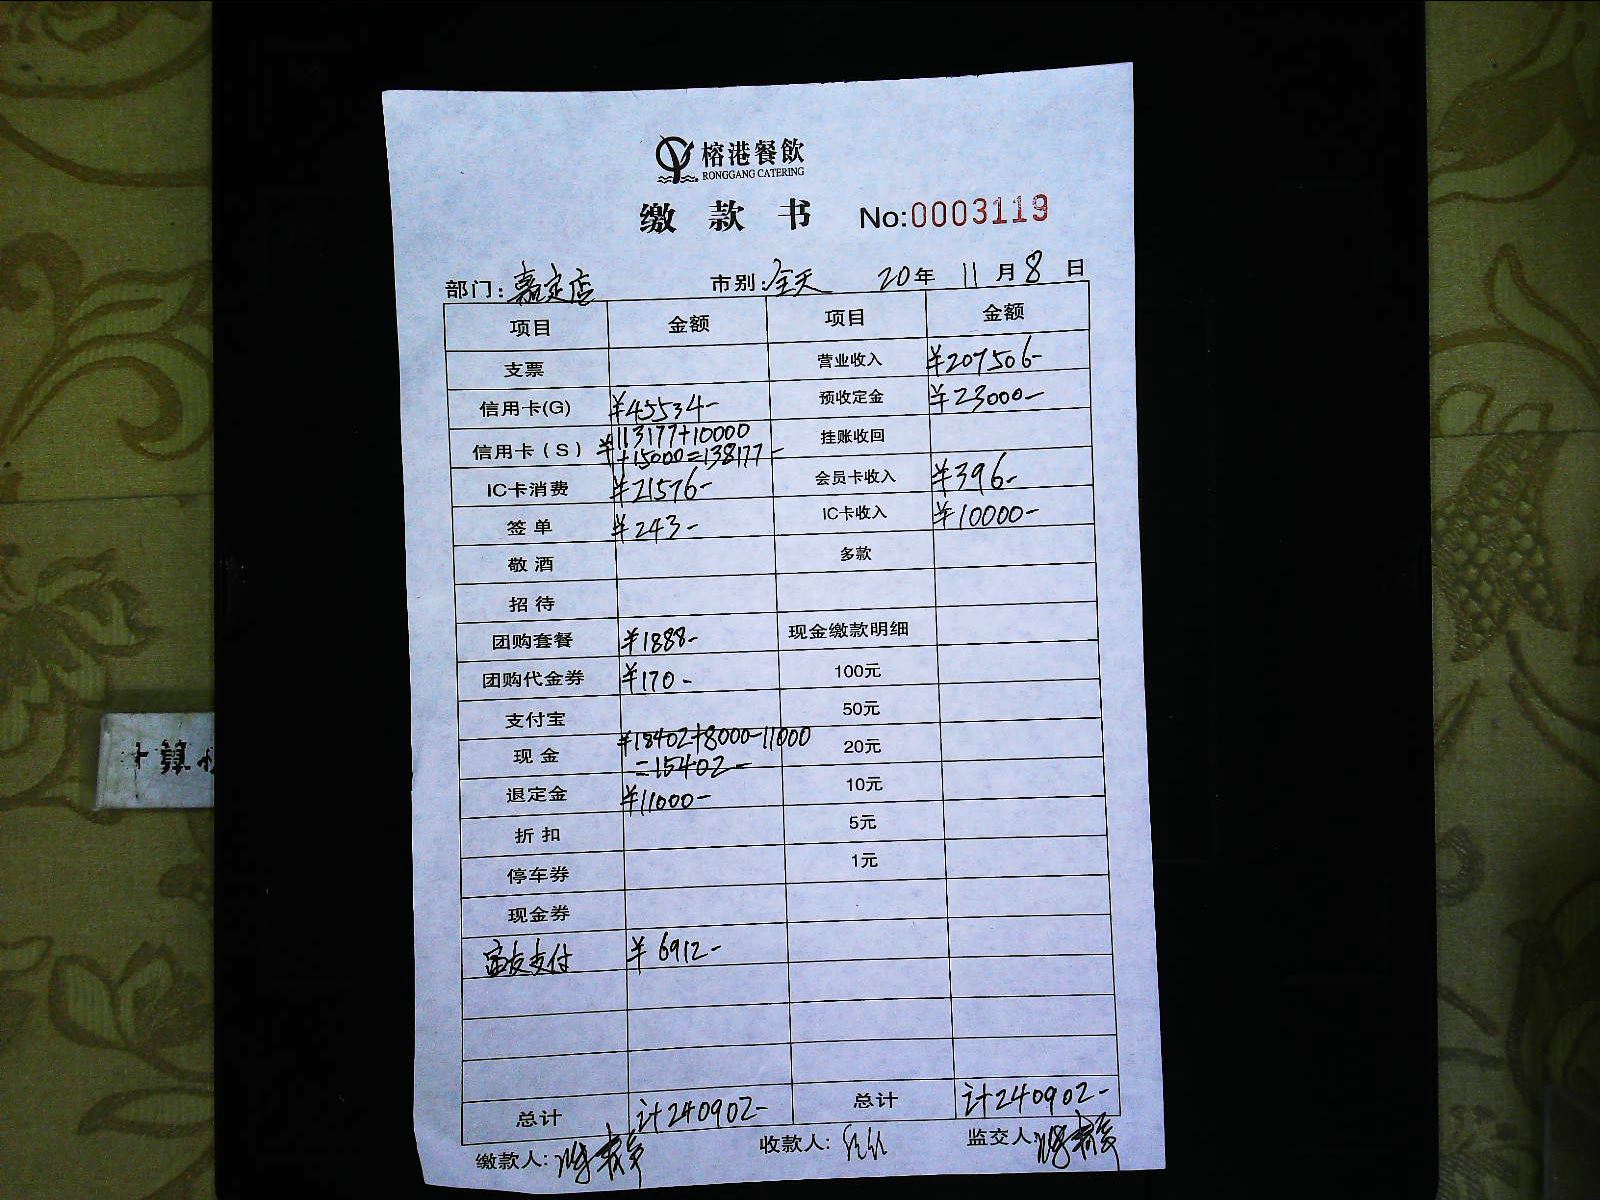 榕港餐飲
RONGGANG CATERING
缴款书 No:0003119
部门:嘉定店 市别:全天 20年 11月8日
项目 金额 项目 金额
支票 营业收入 ¥207506-
信用卡(G) ¥45534- 预收定金 ¥23000-
信用卡(S) ¥113177+10000 挂账收回
+15000=138177-
IC卡消费 ¥21576- 会员卡收入 ¥396-
签单 ¥243- IC卡收入 ¥10000-
敬酒 多款
招待
团购套餐 ¥1888- 现金缴款明细
团购代金券 ¥170- 100元
支付宝 50元
现金 ¥18402+8000-11000 20元
=15402-
退定金 ¥11000- 10元
折扣 5元
停车券 1元
现金券
富友支付 ¥6912-
总计 计240902- 总计 计240902-
缴款人: 收款人: 监交人:
计算